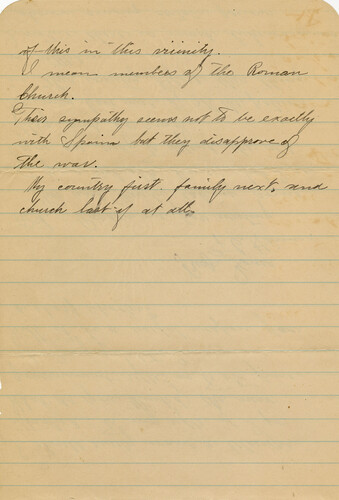 of this in this vicinity.
I mean members of the Roman
Church.
Their sympathy seems not to be exactly
with Spain but they disapprove of
the war.
My country first family next, and
church last if at all.